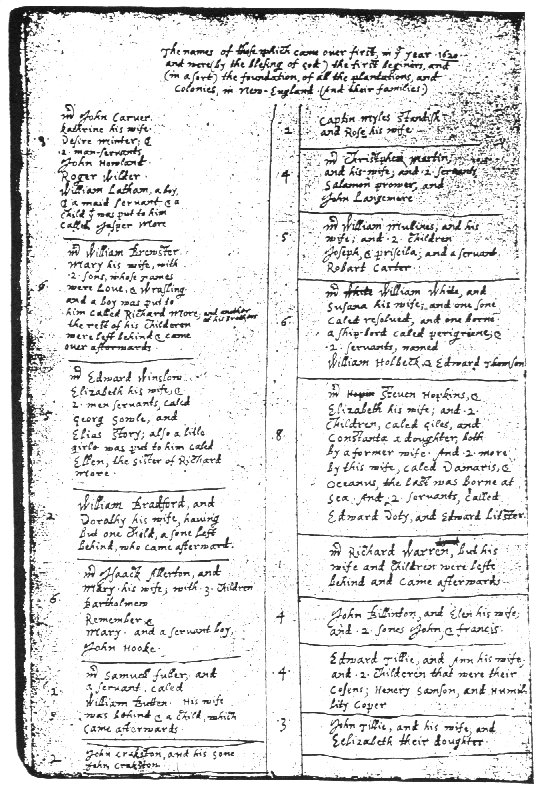 The names of those which came over first, in yͤ year 1620
and were by the blesing of god) the first beginers, and
(in a sort) the foundation, of all the plantations, and
Colonies, in New-England (And their families)
mͬ John Carver.
kathrine his wife.
Desire minter; &
2. man-servants
John Howland
Roger Wilder.
William Latham, a boy,
& a maid servant & a
child yͭ was put to him
called Jasper More
8
mͬ William Brewster.
Mary his wife, with
2 sons, whose names
were Love, & Wrasling
and a boy was put to
him called Richard More, and another
of his brothers
the rest of his Children
were left behind & came
over afterwards
6
mͬ Edward Winslow
Elizabeth his wife, &
2. men servants, caled
Georg Sowle, and
Elias Story; also a litle
girle was put to him caled
Ellen, the sister of Richard
More.
5
William Bradford, and
Dorathy his wife, having
but one child, a sone left
behind, who came afterward.
2
mͬ Isaack Allerton, and
Mary his wife; with 3. Children
Bartholmew
Remember &
Mary. and a servant boy,
John Hooke.
6
mͬ Samuell fuller, and
a servant, caled
William Butten. His wife
was behind & a child, which
came afterwards
2
John Crakston, and his sone
John Crakston
2
Captin Myles Standish
and Rose his wife
2
mͬ Christopher Martin,
and his wife; and 2. servants,
Salamon prower, and
John Langemore
4
mͬ William Mullines, and his
wife; and 2. Children
Joseph, & priscila; and a servant
Robart Carter.
5
mͬ White William White, and
Susana his wife, and one sone
caled resolved, and one borne
a ship-bord caled perigriene; &
2. servants, named
William Holbeck, & Edward Thomson
6
mͬ Steven Hopkins, &
Elizabeth his wife; and 2.
Children, caled Giles, and
Constanta a doughter, both
by a former wife. And 2. more
by this wife, caled Damaris, &
Oceanus, the last was borne at
sea. And 2. servants, called
Edward Doty, and Edward Litster.
8
mͬ Richard Warren, but his
wife and Children were lefte
behind and came afterwards
1
John Billinton, and Elen his wife;
and 2. sones John, & francis.
4
Edward Tillie, and Ann his wife;
and 2. Childeren that were their
Cosens; Henery Samson, and Humil-
lity Coper
4
John Tillie, and his wife; and
Eelizabeth their doughter
3